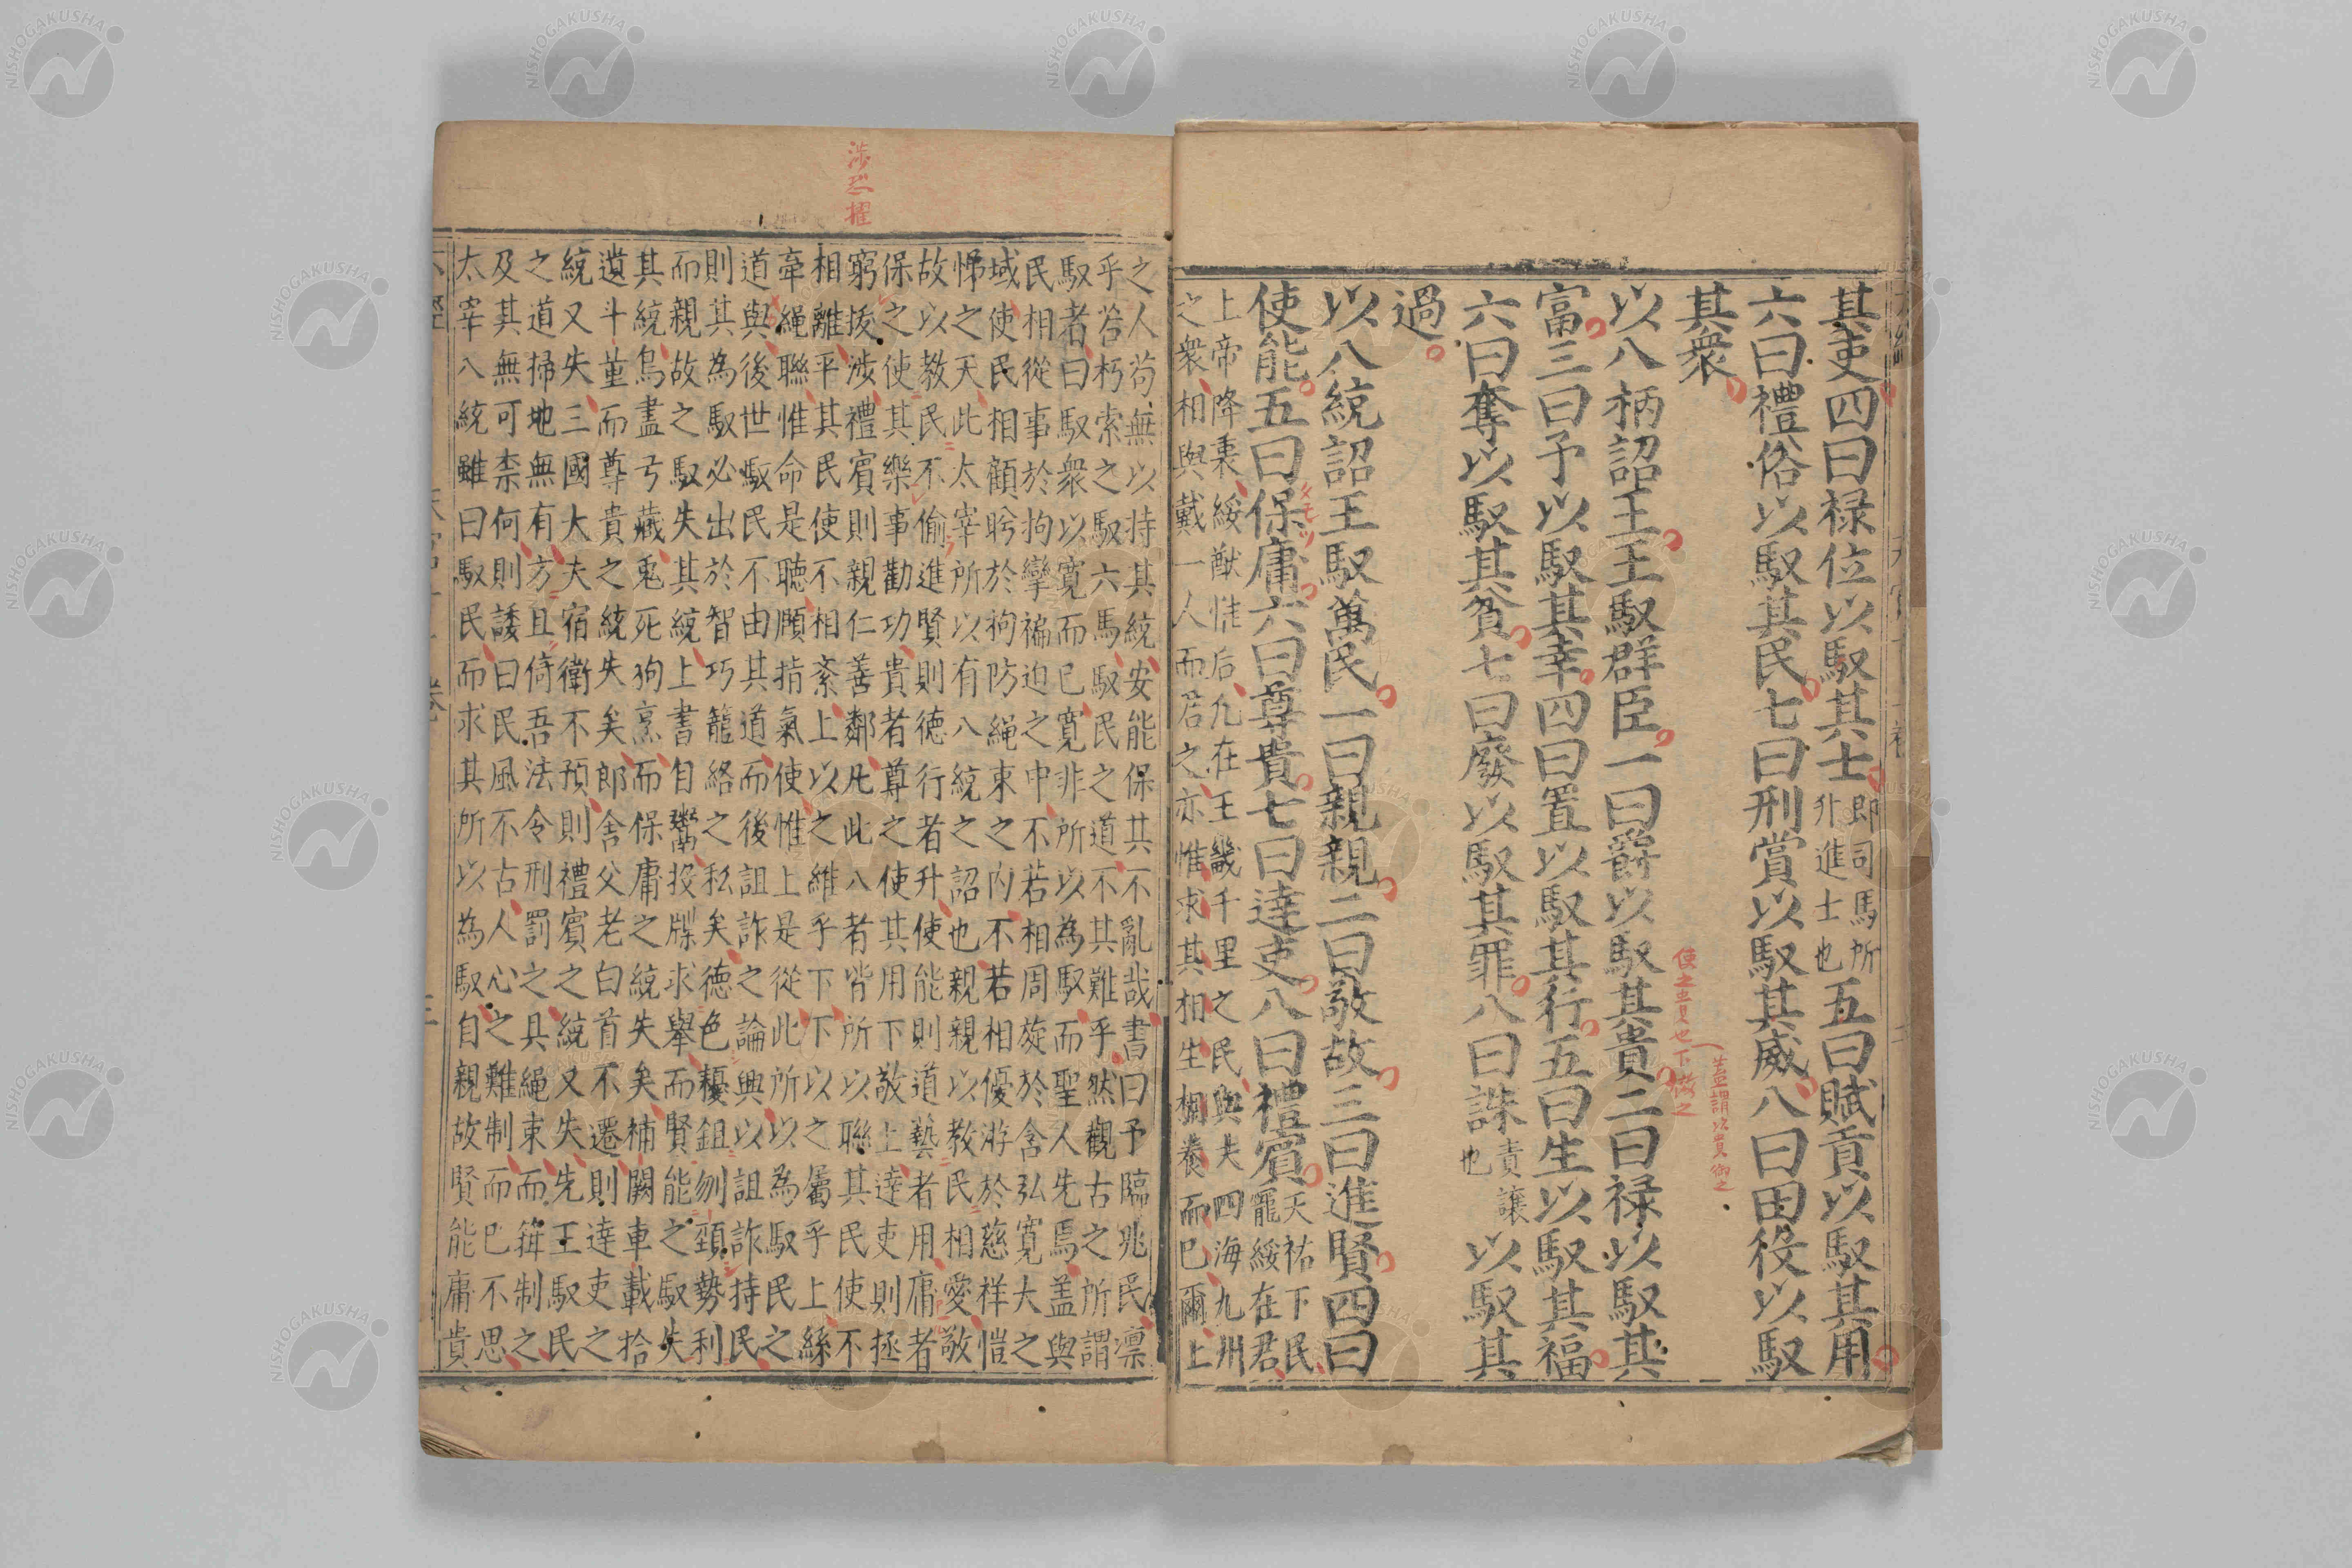 其吏四曰禄位以馭其士即司馬所升進士也五曰賦貢以馭其用
六曰禮俗以馭其民七曰刑賞以馭其威八曰田役以馭
其衆
以八柄詔王王馭群臣一曰爵以馭其貴二曰禄以馭其
富三曰予以馭其幸四曰置以馭其行五曰生以馭其福
六曰奪以馭其貧七曰廢以馭其罪八曰誅責讓也以馭其
過
以八統詔王馭萬民一曰親親二曰敬故三曰進賢四曰
使能五曰保庸六曰尊貴七曰達吏八曰禮賓天祐下民寵綏在君
上帝降衷綏猷惟后凢在王畿千里之民與夫四海九州
之衆相與戴一人而君之亦惟求其相生相養而巳爾上
之人苟無以持其統安能保其不亂哉書曰予臨兆民凛
乎若朽索之馭六馬馭民之道不其難乎然觀古之所謂
馭者曰馭衆以寛而巳寛非所以為馭而聖人先焉盖與
民相從事於拘攣褊迫之中不若相周旋於含弘寛大之
域使民相顧盻於拘防繩束之内不若相優游於慈祥愷
悌之天此太宰所以有八統之詔也親親以教民相愛敬
故以教民不偷進賢則德行者升使能則道藝者用庸者
保之使其樂事勸功貴者尊之使其用下敬上達吏則拯
窮拔渉禮賓則親仁善鄰凢此八者皆所以聯其民使不
相離平其民使不相紊上以之維乎下下以之屬乎上絲
牽繩聯惟命是聽願指氣使惟上是從此所以為馭民之
道與後世馭民不由其道而後詛詐之論興以詛詐持民
則其為馭必出於智巧籠絡之私矣德色耰鉏刎頸勢利
而親故之馭失其統上書自鬻投牒求舉而賢能之馭失
其統鳥盡弓藏兎死狗烹而保庸之統失矣補闕車載拾
遺斗量而尊貴之統失矣郎舍父老白首不遷則達吏之
統又失三國大夫宿衛不預則禮賓之統又失先王馭民
之道掃地無有方且倚吾法令刑罰之具繩束而箝制之
及其無可柰何則諉曰民風不古人心之難制而巳不思
太宰八統雖曰馭民而求其所以為馭自親故賢能庸貴
渉恐擢
盖謂以貴御之
NISHOGAKUSHA